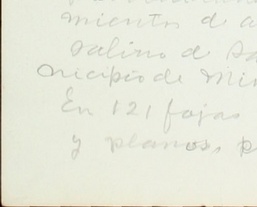 miento d a
salino d Sa
nicipio de Mi
En 121 fojas
y planos, p